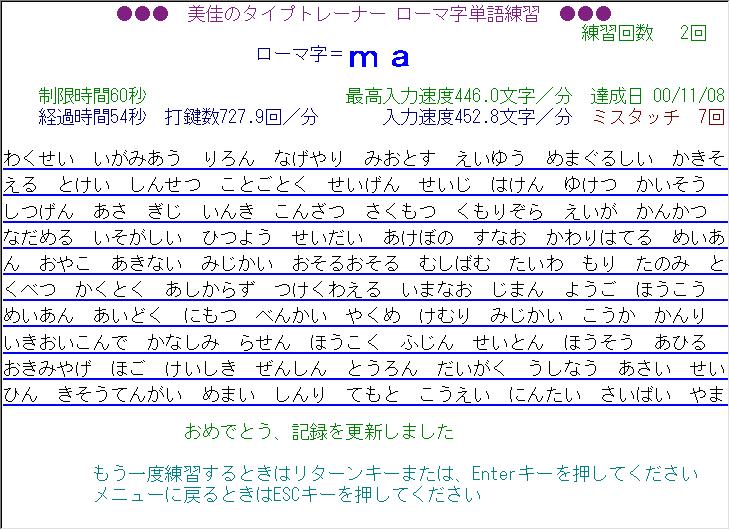 ●●● 美佳のタイプトレーナー ローマ字単語練習 ●●●
練習回数 2回
ローマ字＝ｍａ
制限時間60秒 最高入力速度446.0文字／分 達成日 00/11/08
経過時間54秒 打鍵数727.9回／分 入力速度452.8文字／分 ミスタッチ 7回
わくせい いがみあう りろん なげやり みおとす えいゆう めまぐるしい かきそ
える とけい しんせつ ことごとく せいげん せいじ はけん ゆけつ かいそう
しつげん あさ ぎじ いんき こんざつ さくもつ くもりぞら えいが かんかつ
なだめる いそがしい ひつよう せいだい あけぼの すなお かわりはてる めいあ
ん おやこ あきない みじかい おそるおそる むしばむ たいわ もり たのみ と
くべつ かくとく あしからず つけくわえる いまなお じまん ようご ほうこう
めいあん あいどく にもつ べんかい やくめ けむり みじかい こうか かんり
いきおいこんで かなしみ らせん ほうこく ふじん せいとん ほうそう あひる
おきみやげ ほご けいしき ぜんしん とうろん だいがく うしなう あさい せい
ひん きそうてんがい めまい しんり てもと こうえい にんたい さいばい やま
おめでとう、記録を更新しました
もう一度練習するときはリターンキーまたは、Enterキーを押してください
メニューに戻るときはESCキーを押してください